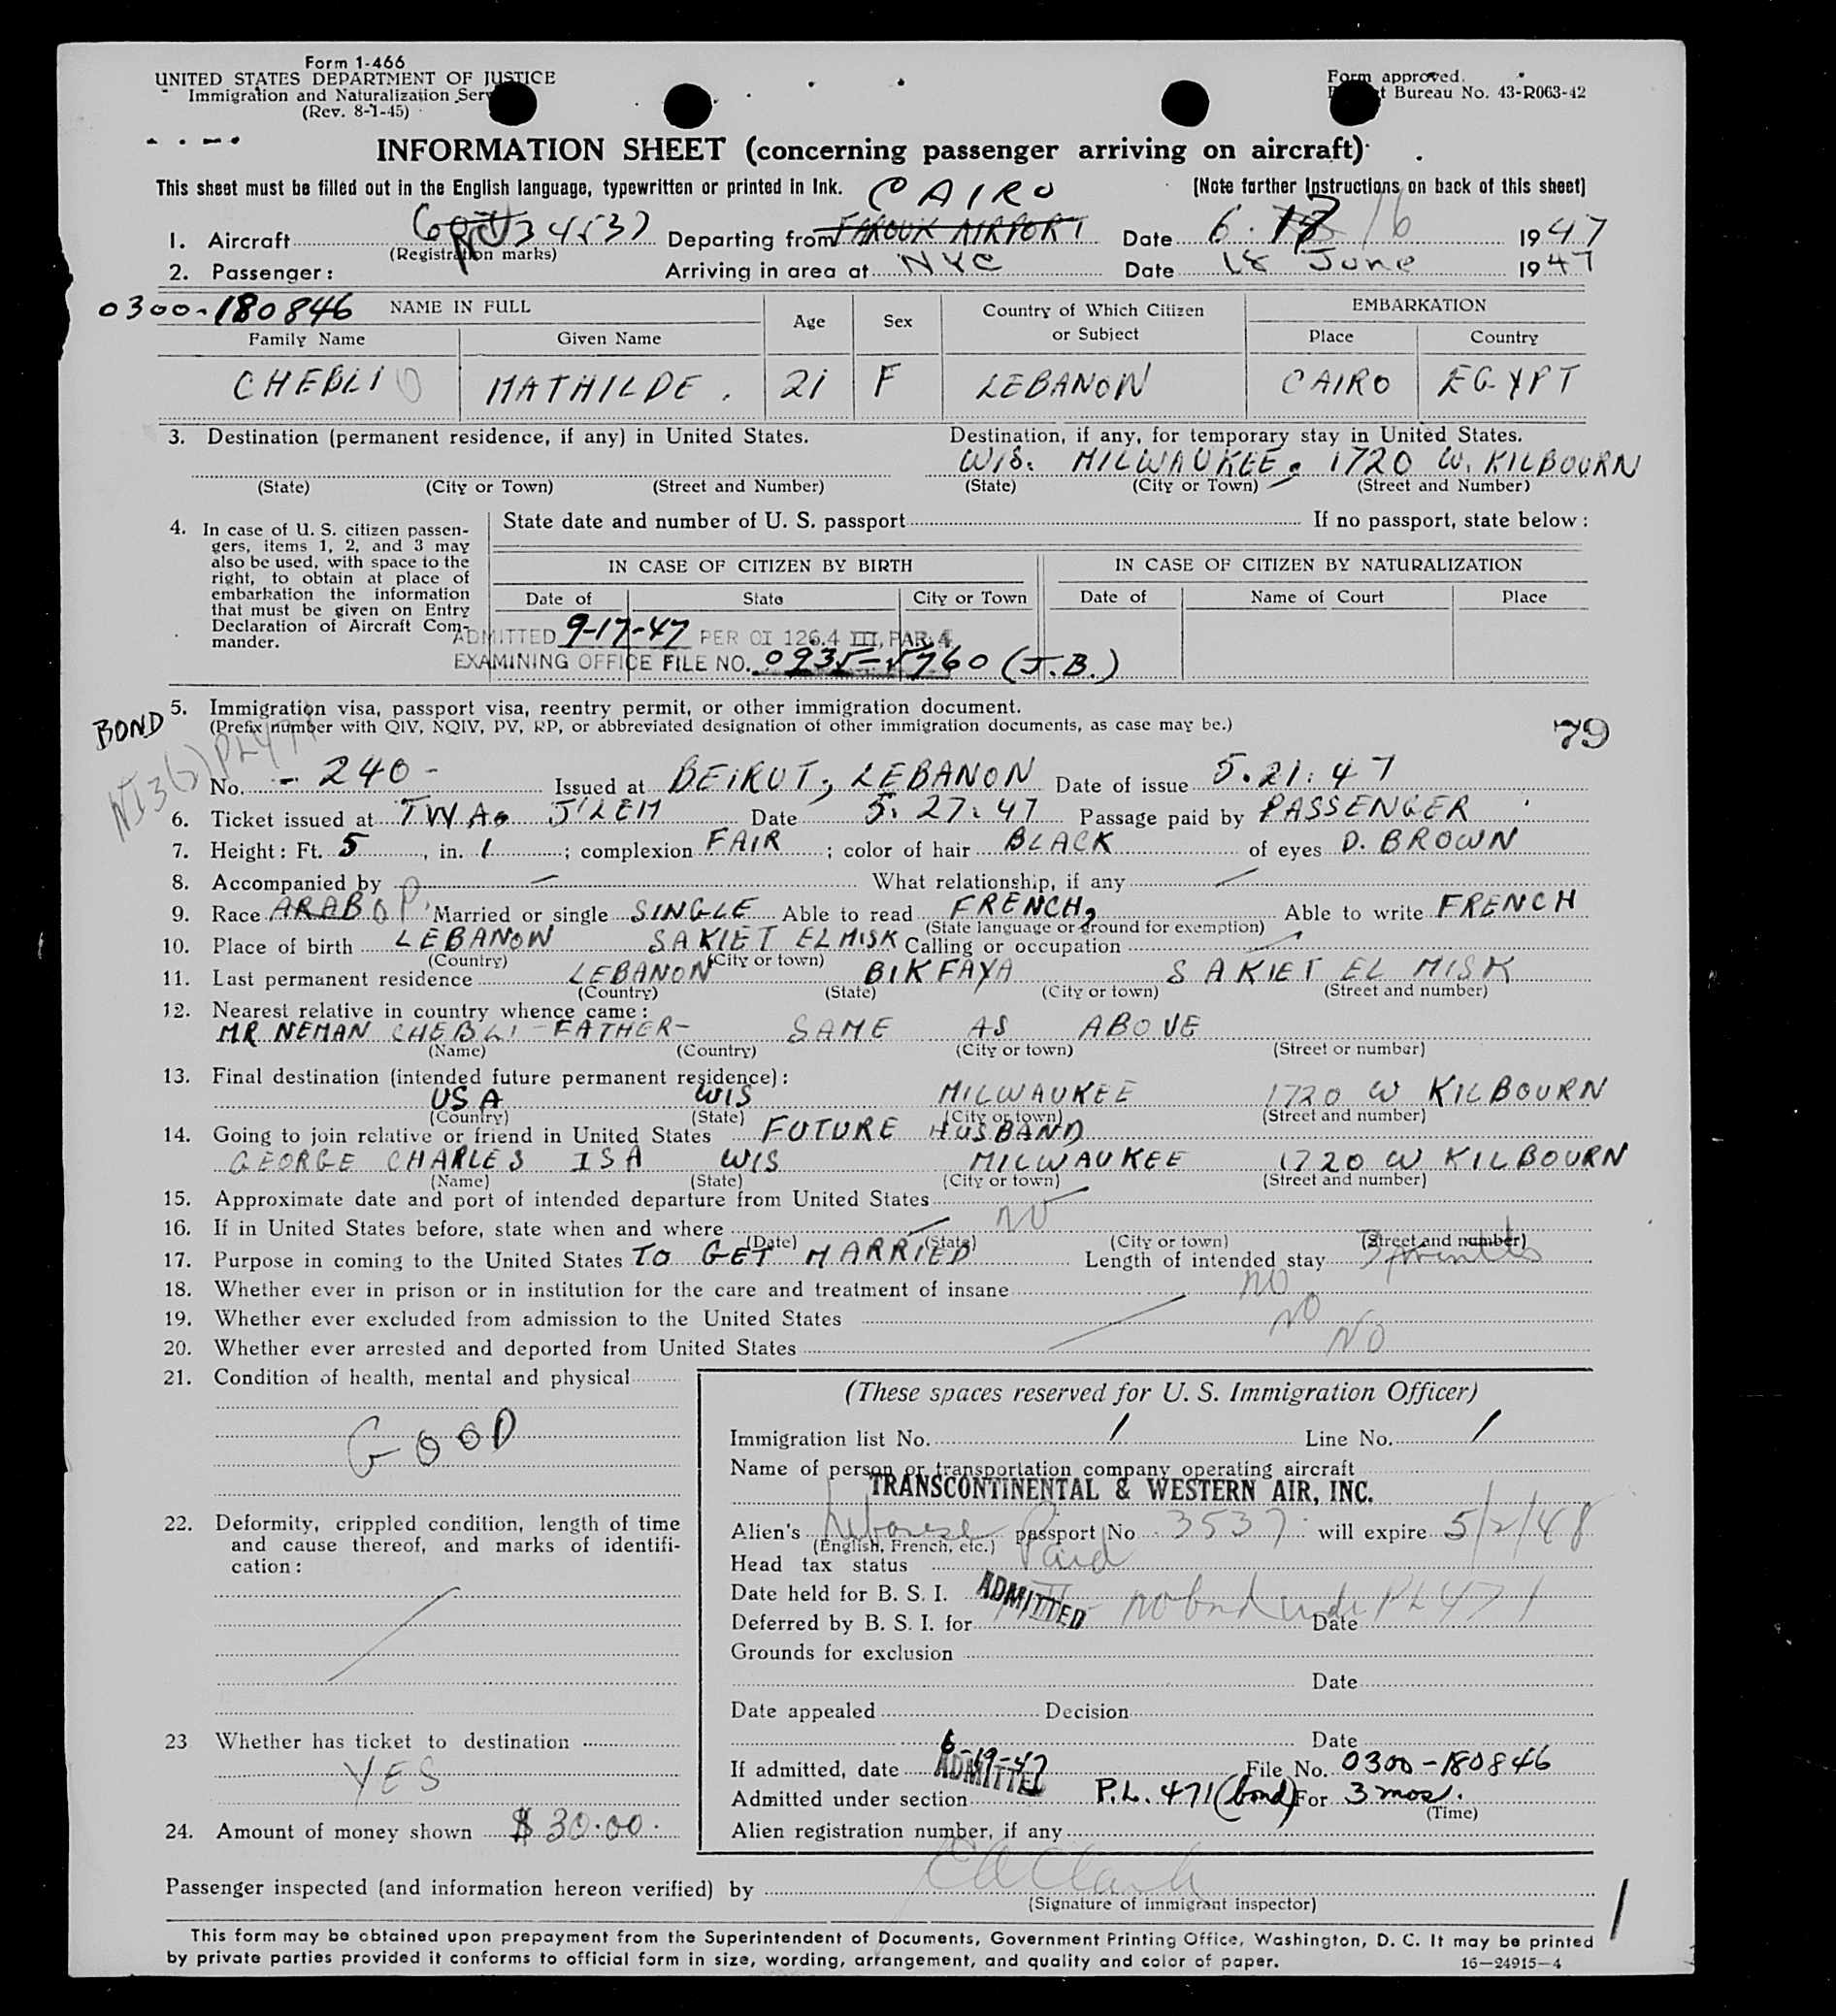 Form 1-466
UNITED STATES DEPARTMENT OF JUSTICE
Immigration and Naturalization Serv
(Rev. 8-1-45)
Form approved.
t Bureau No. 43-R063-42
INFORMATION SHEET (concerning passenger arriving on aircraft)
This sheet must be filled out in the English language, typewritten or printed in Ink. (Note further Instructions on back of this sheet)
CAIRO
1. Aircraft Departing from FAROUK AIRPORT Date 6. 16 1947
(Registration marks)
2. Passenger: Arriving in area at NYC Date 18 June 1947
0300-180846 NAME IN FULL Age Sex Country of Which Citizen or Subject EMBARKATION
Family Name Given Name Place Country
CHEBLI MATHILDE. 21 F LEBANON CAIRO EGYPT
3. Destination (permanent residence, if any) in United States. Destination, if any, for temporary stay in United States.
WIS. MILWAUKEE. 1720 W. KILBOURN
(State) (City or Town) (Street and Number) (State) (City or Town) (Street and Number)
4. In case of U. S. citizen passen-
gers, items 1, 2, and 3 may
also be used, with space to the
right, to obtain at place of
embarkation the information
that must be given on Entry
Declaration of Aircraft Com-
mander.
State date and number of U. S. passport If no passport, state below:
IN CASE OF CITIZEN BY BIRTH IN CASE OF CITIZEN BY NATURALIZATION
Date of State City or Town Date of Name of Court Place
ADMITTED 9-17-47 PER OI 126.4 III, PAR. 4
EXAMINING OFFICE FILE NO. 0935-5760 (J.B.)
BOND
5. Immigration visa, passport visa, reentry permit, or other immigration document.
(Prefix number with QIV, NQIV, PV, RP, or abbreviated designation of other immigration documents, as case may be.)
79
NI3(2) PL471
No. - 240 - Issued at BEIRUT, LEBANON Date of issue 5.21.47
6. Ticket issued at TWA. J'LEM Date 5.27.47 Passage paid by PASSENGER
7. Height: Ft. 5, in. 1; complexion FAIR; color of hair BLACK of eyes D. BROWN
8. Accompanied by — What relationship, if any —
9. Race ARAB Married or single SINGLE Able to read FRENCH, Able to write FRENCH
(State language or ground for exemption)
10. Place of birth LEBANON SAKIET EL MISK Calling or occupation
(Country) (City or town)
11. Last permanent residence LEBANON BIKFAYA SAKIET EL MISK
(Country) (State) (City or town) (Street and number)
12. Nearest relative in country whence came:
MR NEMAN CHEBLI -FATHER- SAME AS ABOVE
(Name) (Country) (City or town) (Street or number)
13. Final destination (intended future permanent residence):
USA WIS MILWAUKEE 1720 W KILBOURN
(Country) (State) (City or town) (Street and number)
14. Going to join relative or friend in United States FUTURE HUSBAND
GEORGE CHARLES ISA WIS MILWAUKEE 1720 W KILBOURN
(Name) (State) (City or town) (Street and number)
15. Approximate date and port of intended departure from United States
16. If in United States before, state when and where NO
(Date) (State) (City or town) (Street and number)
17. Purpose in coming to the United States TO GET MARRIED Length of intended stay 3 months
18. Whether ever in prison or in institution for the care and treatment of insane NO
19. Whether ever excluded from admission to the United States NO
20. Whether ever arrested and deported from United States NO
21. Condition of health, mental and physical
GOOD
22. Deformity, crippled condition, length of time
and cause thereof, and marks of identifi-
cation:
23 Whether has ticket to destination
YES
24. Amount of money shown $ 30.00.
(These spaces reserved for U. S. Immigration Officer)
Immigration list No. 1 Line No. 1
Name of person or transportation company operating aircraft
TRANSCONTINENTAL & WESTERN AIR, INC.
Alien's Lebanese passport No 3537 will expire 5/2/48
(English, French, etc.)
Head tax status Paid
Date held for B. S. I. ADMITTED no bond under PL 471
Deferred by B. S. I. for Date
Grounds for exclusion
Date
Date appealed Decision
Date
If admitted, date 6-19-47 ADMITTED File No. 0300-180846
Admitted under section P.L. 471 (bond) For 3 mos.
(Time)
Alien registration number, if any
Passenger inspected (and information hereon verified) by
(Signature of immigrant inspector)
This form may be obtained upon prepayment from the Superintendent of Documents, Government Printing Office, Washington, D. C. It may be printed
by private parties provided it conforms to official form in size, wording, arrangement, and quality and color of paper. 16—24915-4